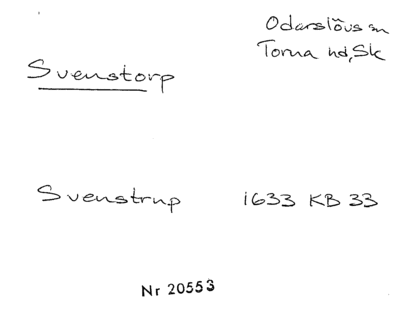 Odarslövs sn
Torna hd, Sk
Svenstorp
Svenstrup 1633 KB 33
Nr 20553